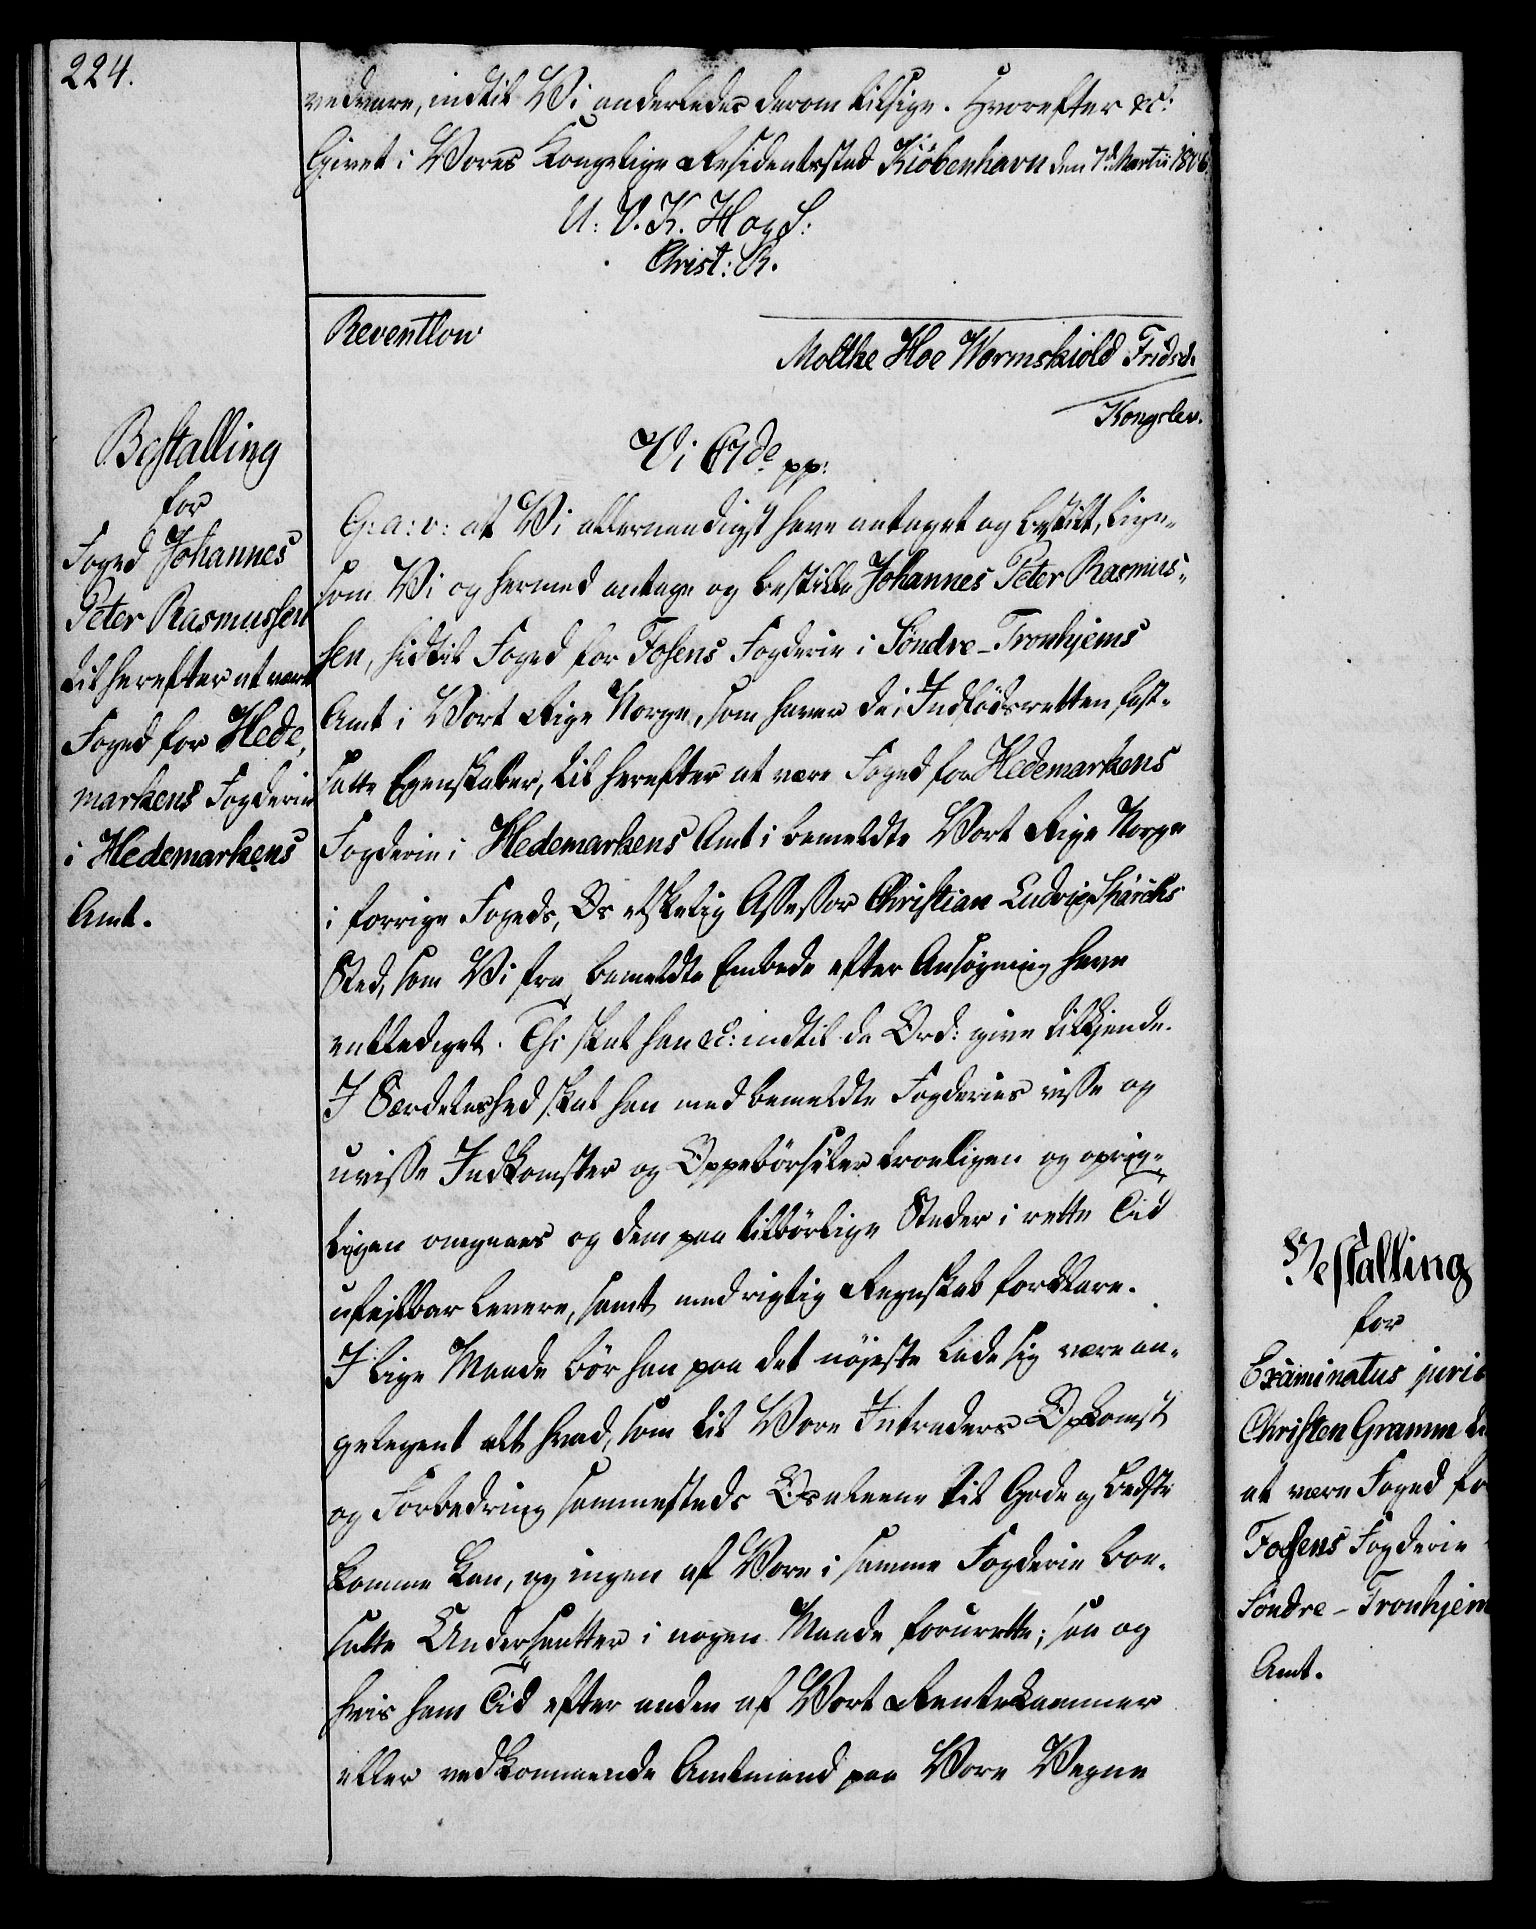 224.
vedvare, indtil Vi anderledes derom tilsige. Hvorefter &c:
Givet i Vores Kongelige Residentsstad Kiöbenhavn den 7d Martii 1806.
U: V. K. H. og S:
Christ: R.
Reventlow
Moltke Hoe Wormskiold Fridsd.
Kongslev.
Bestalling
for
Foged Johannes
Peter Rasmussen
til herefter at være
Foged for Hede,
markens Fogderie
i Hedemarkens
Amt.
Vi C 7de pp:
G: a: v: at Vi allernaadigst have antaget og bestilt, lige-
som Vi og hermed antage og bestille Johannes Peter Rasmus-
sen, hidtil Foged for Fosens Fogderie i Söndre-Tronhjems
Amt i Vort Rige Norge, som haver de i Indfödsretten fast-
satte Egenskaber, til herefter at være Foged for Hedemarkens
Fogderie i Hedemarkens Amt i bemeldte Vort Rige Norge
i forrige Fogeds, Os elskelig Assessor Christian Ludvig Spärcks
Sted, som Vi fra bemeldte Embede efter Ansögning have
entlediget. Thi skal han &c: indtil de Ord: give tilkjende.
I Særdeleshed skal han med bemeldte Fogderies visse og
uvisse Indkomster og Oppebörseler troeligen og oprig-
tigen omgaaes og dem paa tilbörlige Steder i rette Tid
ufejlbar levere, samt med rigtig Regnskab forklare.
I lige Maade bör han paa det nöjeste lade sig være an-
gelegent alt hvad, som til Vore Intraders Opkomst
og Forbedring sammesteds Os alene til Gode og Bedste
komme kan, og ingen af Vore i samme Fogderie boe-
satte Undersaatter i nogen Maade forurette; saa og
hvis ham Tid efter anden af Vort Rentekammer
eller vedkommende Amtmand paa Vore Vegne
Bestalling
for
Examinatus juris
Christen Gramm
at være Foged for
Fosens Fogderie
Söndre-Tronhjem
Amt.